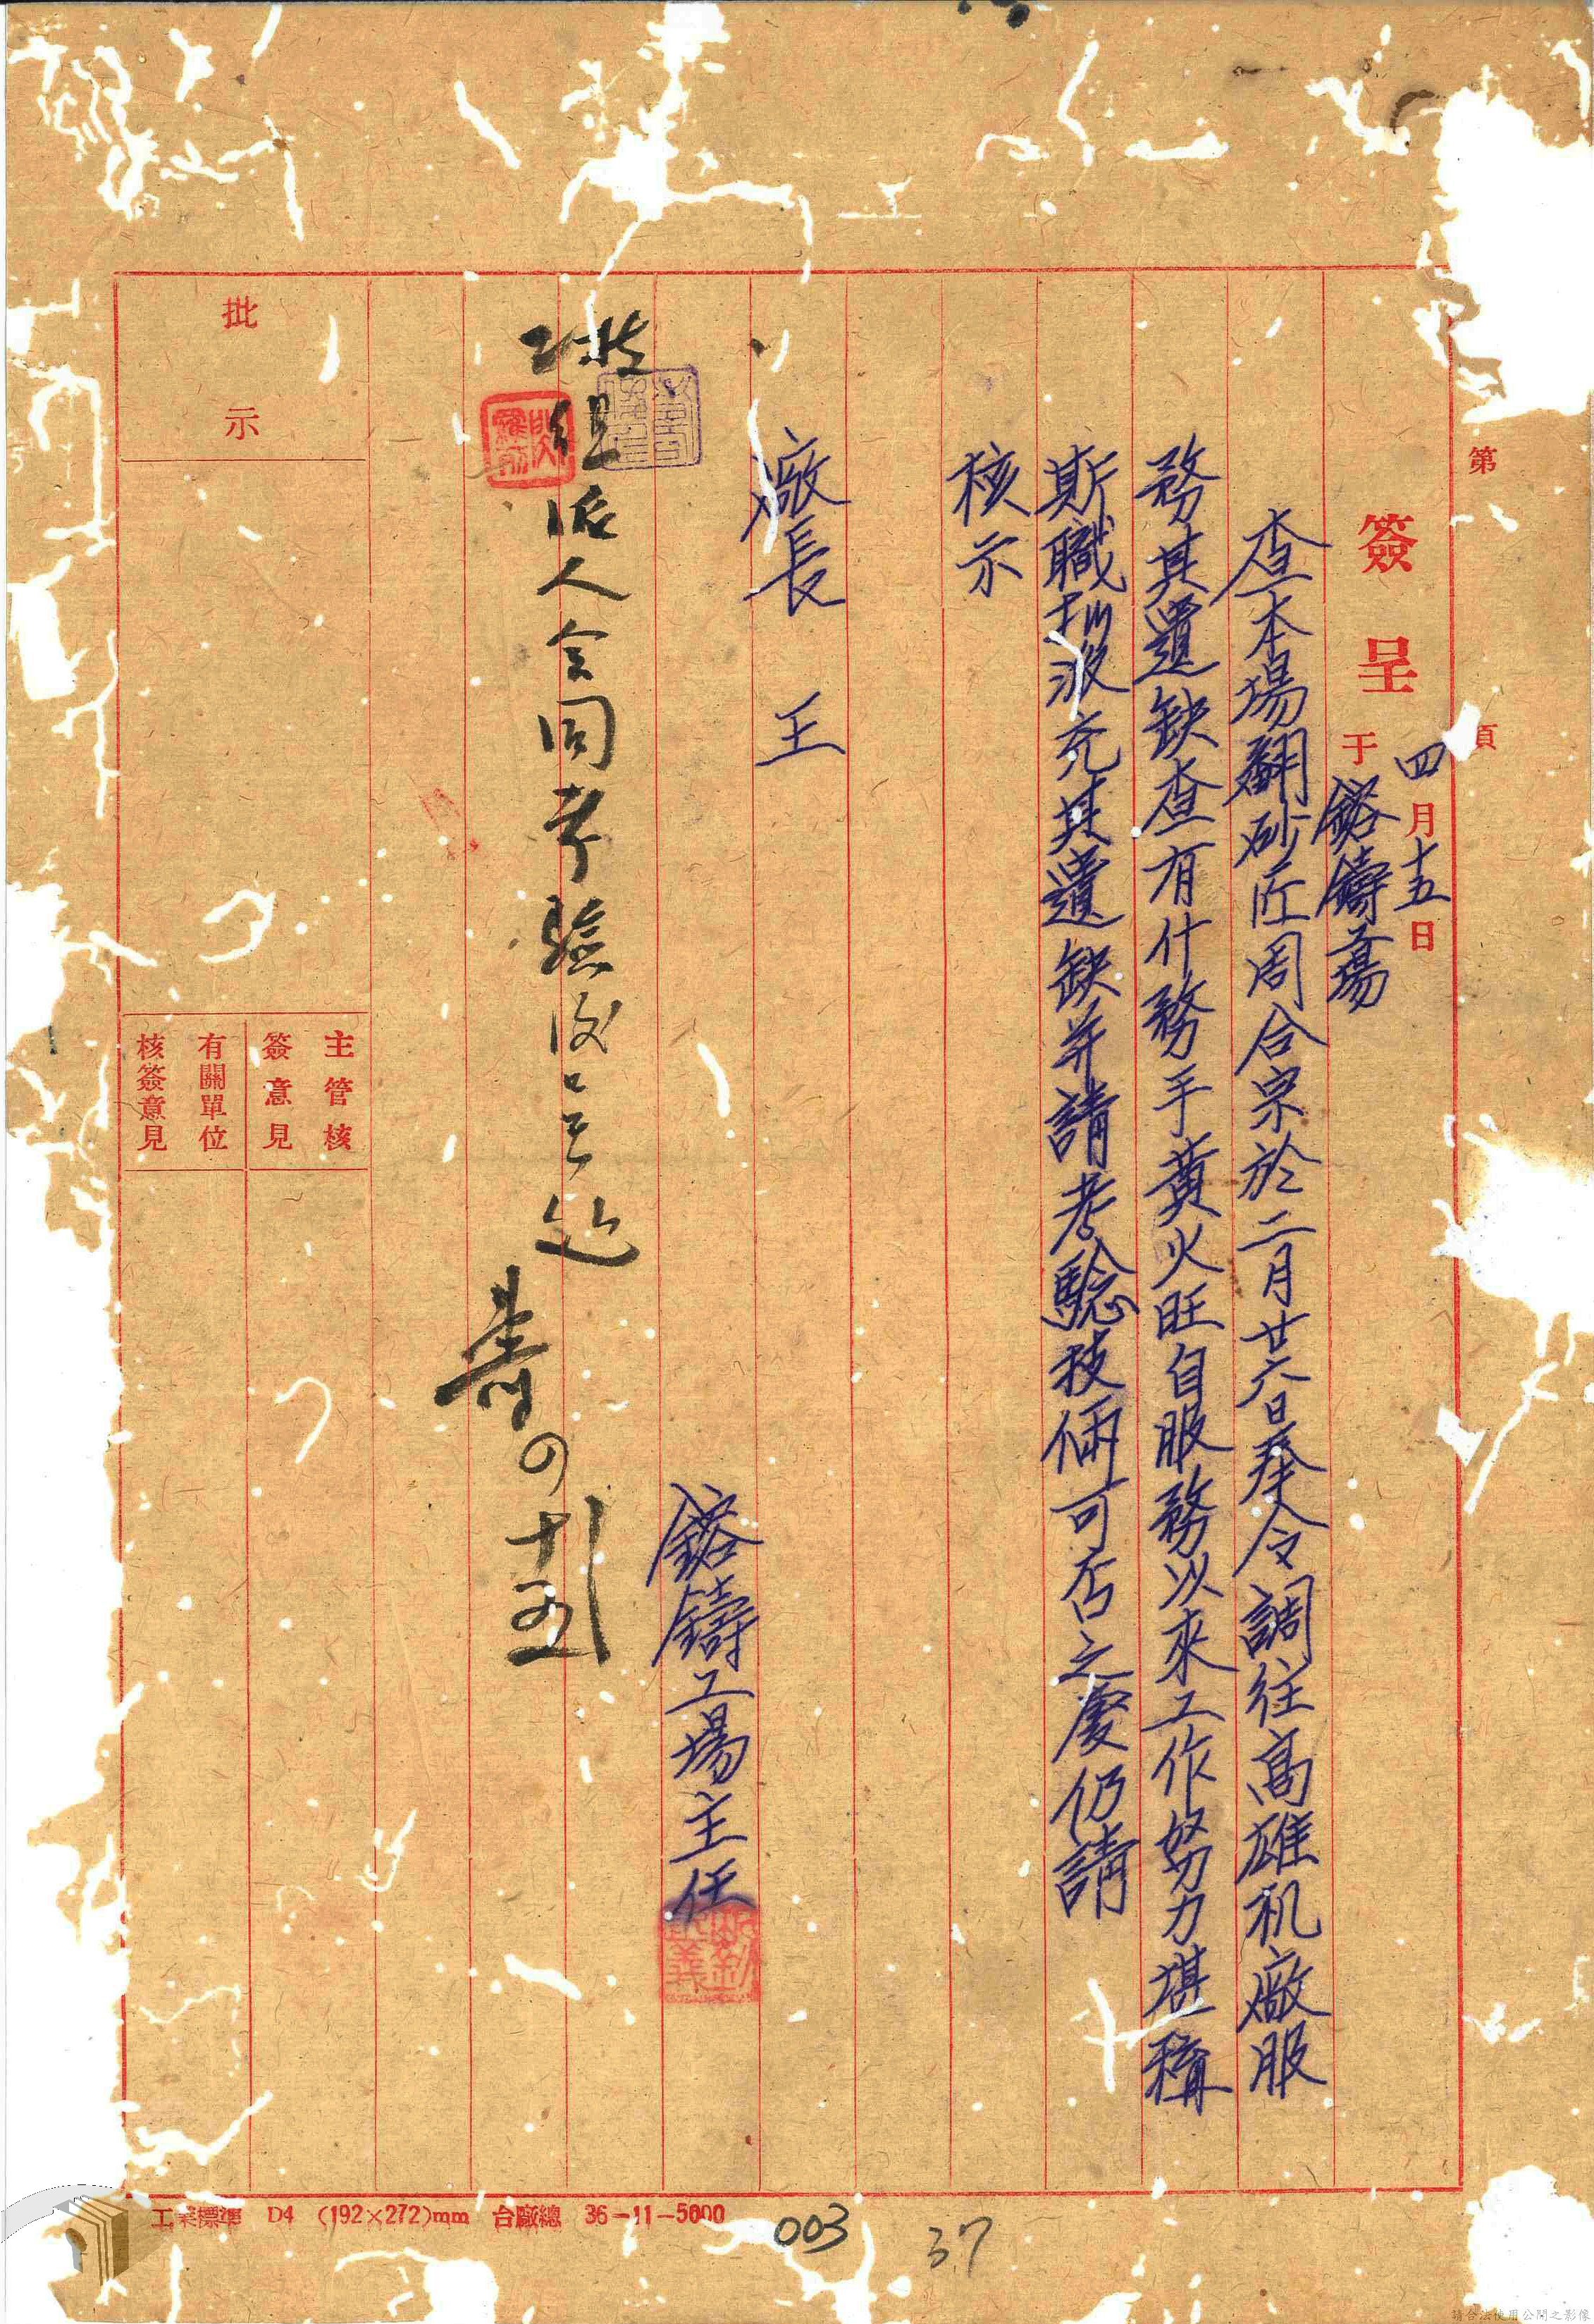 第 頁
簽呈 四月十五日
于 鎔鑄工場
查本場翻砂匠周合宗於二月廿六日奉令調往高雄机廠服
務其遺缺查有什務手黄火旺自服務以來工作努力堪稱
斯職擬派充其遺缺并請考驗技倆可否之處仍請
核示
廠長 王
鎔鑄工場主任
組派人会同考驗後
壽 の十五
批示
主管核
簽意見
有關單位
核簽意見
工業標準 D4 (192×272)mm 台廠總 36-11-5000
003
37
請合法使用公開之影像